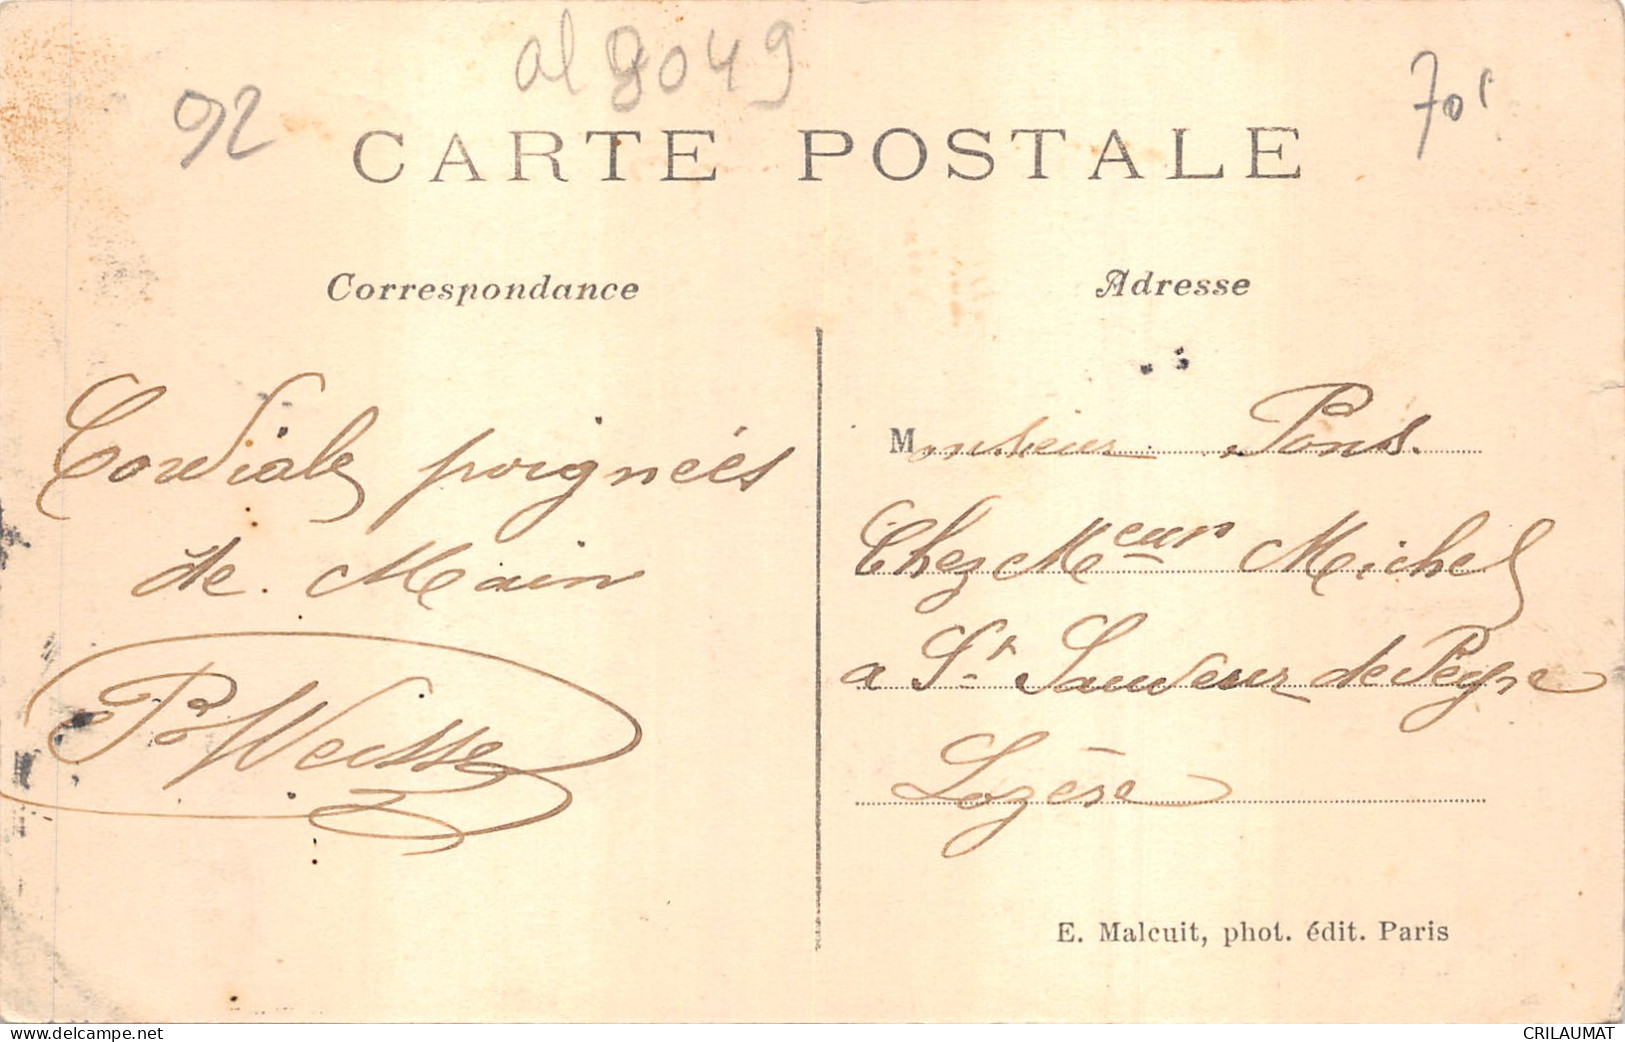 92
al 9049
70f
CARTE POSTALE
Correspondance
Adresse
Cordiale poignées
de Main
P Weisse
Monsieur Pons.
Chez Meur Michel
a St Sauveur de Peyre
Lozère
E. Malcuit, phot. édit. Paris
www.delcampe.net
CRILAUMAT